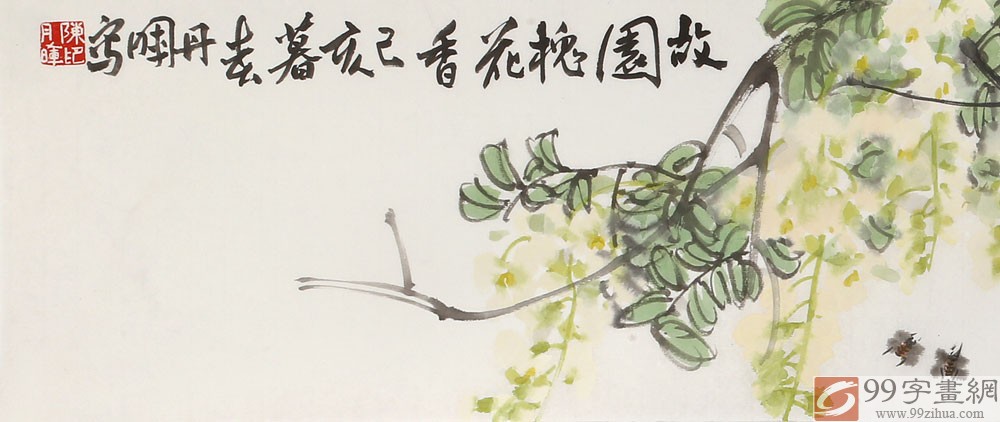 故園槐花香 己亥暮春月暉写
陳印月暉
99字畫網
www.99zihua.com